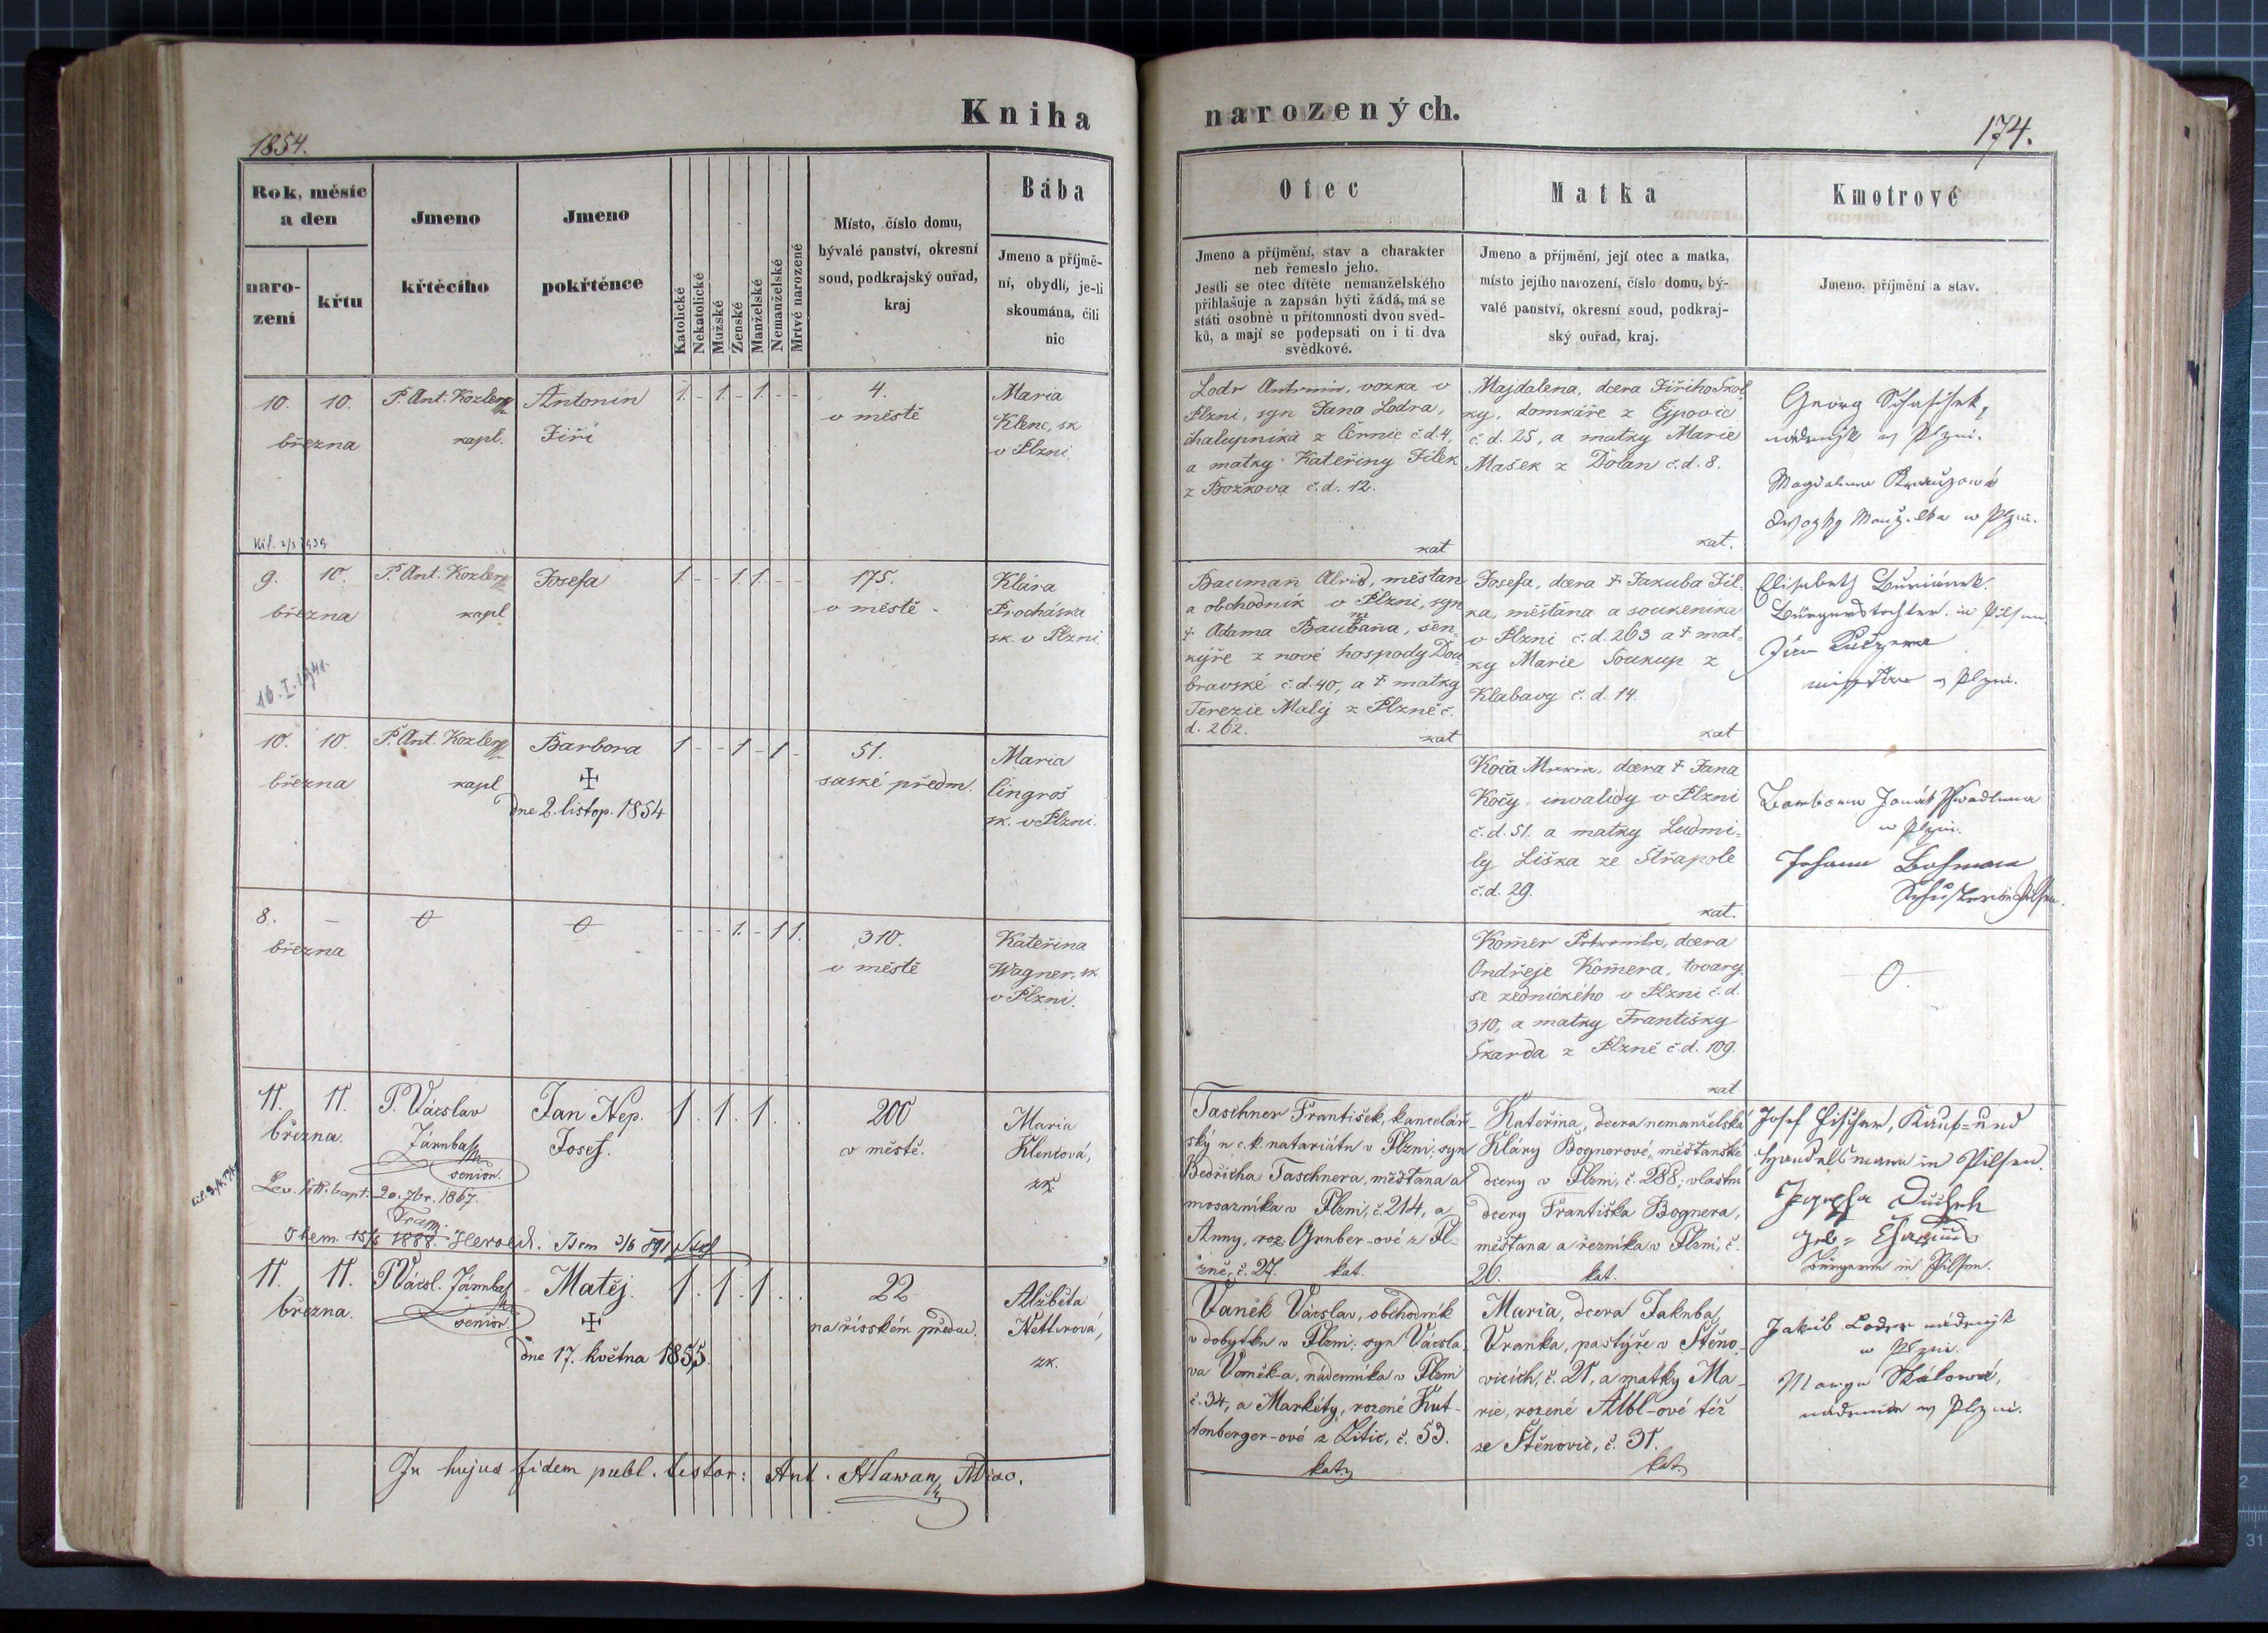 Kniha
narozených.
1854.
174.
Rok, měsíc
a den
naro-
zení
křtu
Jmeno
křtěcího
Jmeno
pokřtěnce
Katolické
Nekatolické
Mužské
Ženské
Manželské
Nemanželské
Mrtvé narozené
Místo, číslo domu,
bývalé panství, okresní
soud, podkrajský ouřad,
kraj
Bába
Jmeno a příjmě-
ní, obydlí, je-li
skoumána, čili
nic
Otec
Jmeno a příjmění, stav a charakter
neb řemeslo jeho.
Jestli se otec dítěte nemanželského
přihlašuje a zapsán býti žádá, má se
státi osobně u přítomnosti dvou svěd-
ků, a mají se podepsati on i ti dva
svědkové.
Matka
Jmeno a příjmění, její otec a matka,
místo jejího narození, číslo domu, bý-
valé panství, okresní soud, podkraj-
ský ouřad, kraj.
Kmotrové
Jmeno, příjmění a stav.
10. 10.
března
P. Ant. Kozler
kapl.
Antonín
Jiří
1. - 1. - 1. - -
4.
v městě
Maria
Klenc, sk
v Plzni.
Lodr Antonín, vozka v
Plzni, syn Jana Lodra,
chalupníka z Černic č.d. 4,
a matky Kateřiny Jílek
z Božkova č.d. 12.
kat
Majdalena, dcera Jiřího Škol
ky, domkáře z Ejpovic
č.d. 25, a matky Marie
Mašek z Dolan č.d. 8.
kat.
Georg
w Plzni.
Magdalena
w Plzni.
9. 10.
března
16. I. 1941.
P. Ant. Kozler
kapl
Josefa
1 - - 1. 1. - -
175.
v městě
Klára
Procháska
sk. v Plzni
Bauman Alois, měštan
a obchodník v Plzni, syn
† Adama Baumana, šen-
kýře z nové hospody Dou-
bravské č.d. 40, a † matky
Terezie Malý z Plzně č.
d. 262.
kat
Josefa, dcera † Jakuba Jíl-
ka, měštana a soukeníka
v Plzni č.d. 263 a † mat-
ky Marie Soukup z
Klabavy č.d. 14.
kat
Elisabeth
Bürgerstochter in Pilsen
w Plzni.
10. 10.
března
P. Ant. Kozler
kapl
Barbora
†
dne 2. listop. 1854
1 - - 1 - 1 -
51.
saské předm.
Maria
Cingroš
sk. v Plzni.
Koča Maria, dcera † Jana
Kočy, invalidy v Plzni
č.d. 51. a matky Ludmi-
ly Liška ze Střapole
č.d. 29.
kat.
w Plzni.
Johann
8. -
března
0
0
- - - 1. - 1 1.
310.
v městě
Kateřina
Wagner, sk
v Plzni.
Komer Petronila, dcera
Ondřeje Komera, tovary-
še zednického v Plzni č.d.
310, a matky Františky
Škarda z Plzně č.d. 109.
kat
0.
11. 11.
března.
P. Vácslav
Jarnba
senior.
Jan Nep.
Josef.
1. 1. 1. . .
200
v městě.
Maria
Klencová,
zk.
Lev. litt. bapt. 20. 7br. 1867.
Taschner František, kancelář-
ský u c.k. natariátu v Plzni; syn
Bedřicha Taschnera, měštana a
mosazníka v Plzni, č. 214, a
Anny, roz. Gruber-ové z Pl-
zně, č. 27. kat.
Kateřina, dcera nemanželská
Kláry Bognerové, měštanské
dcery v Plzni, č. 288; vlastní
dcery Františka Bognera,
měštana a řezníka v Plzni, č.
20. kat.
Josef Fischer, Kauf- und
Handelsmann in Pilsen.
Josepha
geb.
Bürgerin in Pilsen.
11. 11.
března.
P. Vácsl. Jarnba
senior.
Matěj.
†
dne 17. května 1855.
1. 1. 1. . .
22
na řísském předm.
Alžběta
Netlrová,
zk.
Vaněk Vácslav, obchodník
v dobytku v Plzni; syn Vácsla-
va Vaněk-a, nádenníka v Plzni
č. 34, a Markéty, rozené Kut-
tenberger-ové z Litic, č. 53.
kat.
Maria, dcera Jakuba
Vranka, pastýře v Štěno-
vicích, č. 21, a matky Ma-
rie, rozené Albl-ové též
ze Štěnovic, č. 31.
kat.
Jakub Loder
w Plzni.
w Plzni.
In hujus fidem publ. testor: Ant. Hlawan